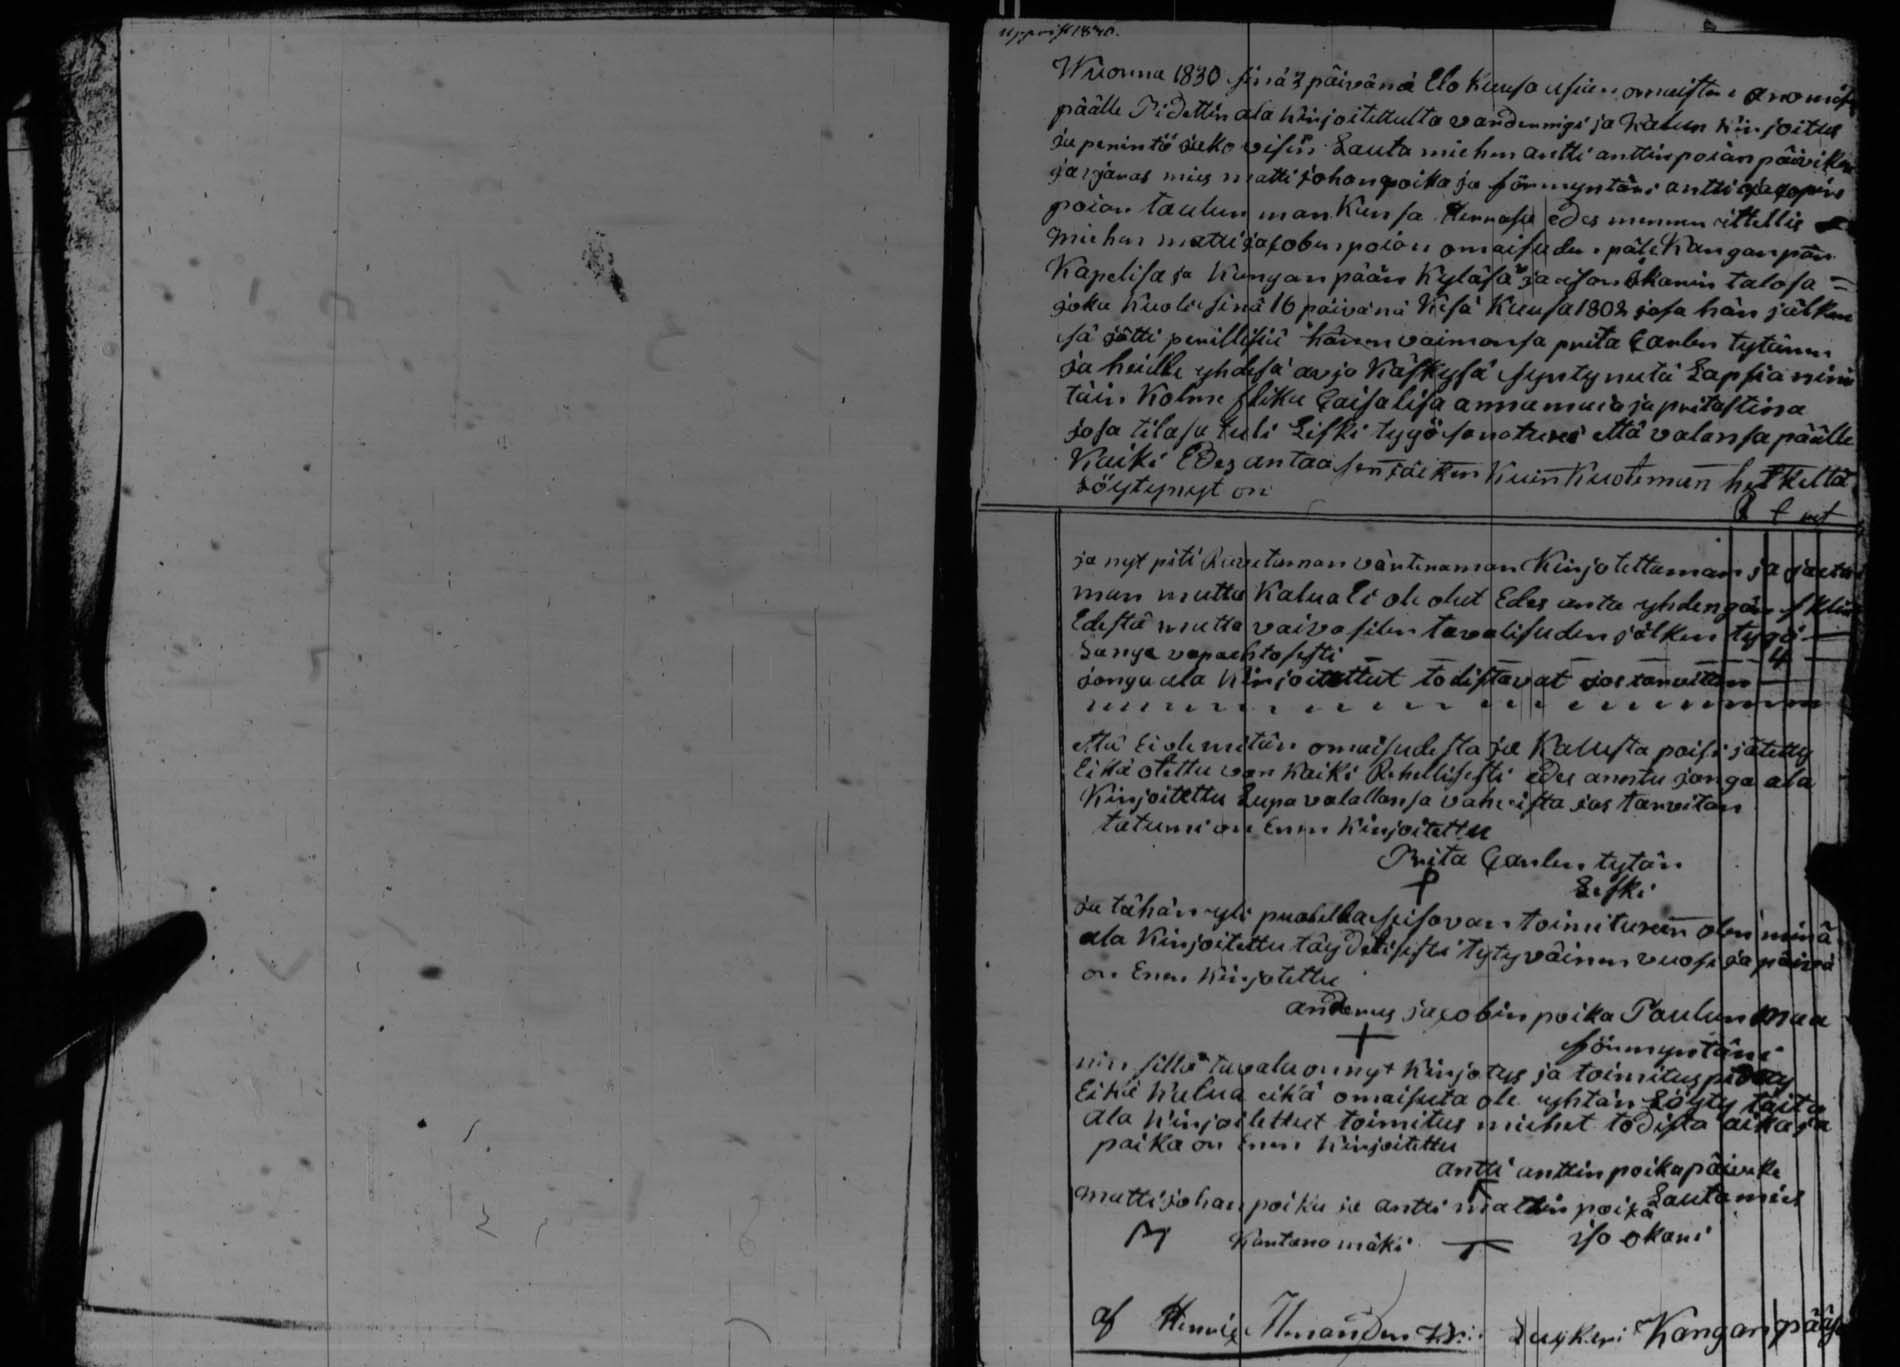 upprist 1830.
Wuonna 1830 sinä 3 päivänä Elo Kuusa usian omaisten anomisen
päälle Pidettin ala Kirjoitettulta vardeningi ja Kalun Kirjoitus
ja perintö jako visiin Lauta miehen antti anttin poian päiviken
ja Jäsnas mies matti johanpoika ja förmyntäri antti jacopin
poian taulun man Kansa Hennasa edes mennen ittellis
miehen matti jacobin poian omaisuden päle Kangan pän
Kapelisa ja Kangan pään Kyläsä ja ison okanin talosa =
joka Kuoli sinä 16 päivänä Kesä Kuusa 1802 josa hän jälken
sä jätti perillisiä hänen vaimonsa prita Carlen tytären
ja heille yhdesä avjo Käskysä syntynutä Lapsia nimi
täin Kolme flika Caisalisa annamaia ja pritastina
josa tilasa tuli Leski tygö sanotuxi että valansa päälle
Kaiki Edes antaa sen jälken Kuin Kuoleman hetkeltä
Löytynyt on
R f wt
ja nyt piti Ruvetaman värteraman Kirjotettaman ja jaeta
man mutta Kalua Ei ole olut Edes anta yhdengän skilin
Edestä mutta vaivasilen tavalisuden jälken tygö —
Lanya vapaehtosesti — — — — — — — — 4 —
jonga ala Kirjoitettut todistavat jos tarvitan —
että Ei ole mitän omaisudesta ja Kalusta poisi jätetty
Eikä otettu van Kaiki Rehellisesti edes anntu jonga ala
Kirjoitettu Lupa valallansa vahvista jos tarvitan
tatumi on Enen Kirjoitettu
Prita Carlen tytän
Leski
ja tähän yli puolella seisovan toimituxen olen minä
ala Kirjoitettu täydelisesti tytyväinen vuosi ja päivä
on Enen Kirjotettu
anderus jacobin poika Taulun maa
förmyntäri
niin sillä tavala on nyt Kirjotys ja toimitus pidetty
Eikä Kalua eikä omaisuta ole yhtän Löyty täitä
ala Kirjoitettut toimitus miehet todista aika ja
paika on Enen Kirjoitettu
antti anttin poika päivike
Lautamies
matti johan poika ja antti mattin poika
Kantano mäki iso okani
af Henric Thnanden Lugkeri Kangan pääsä